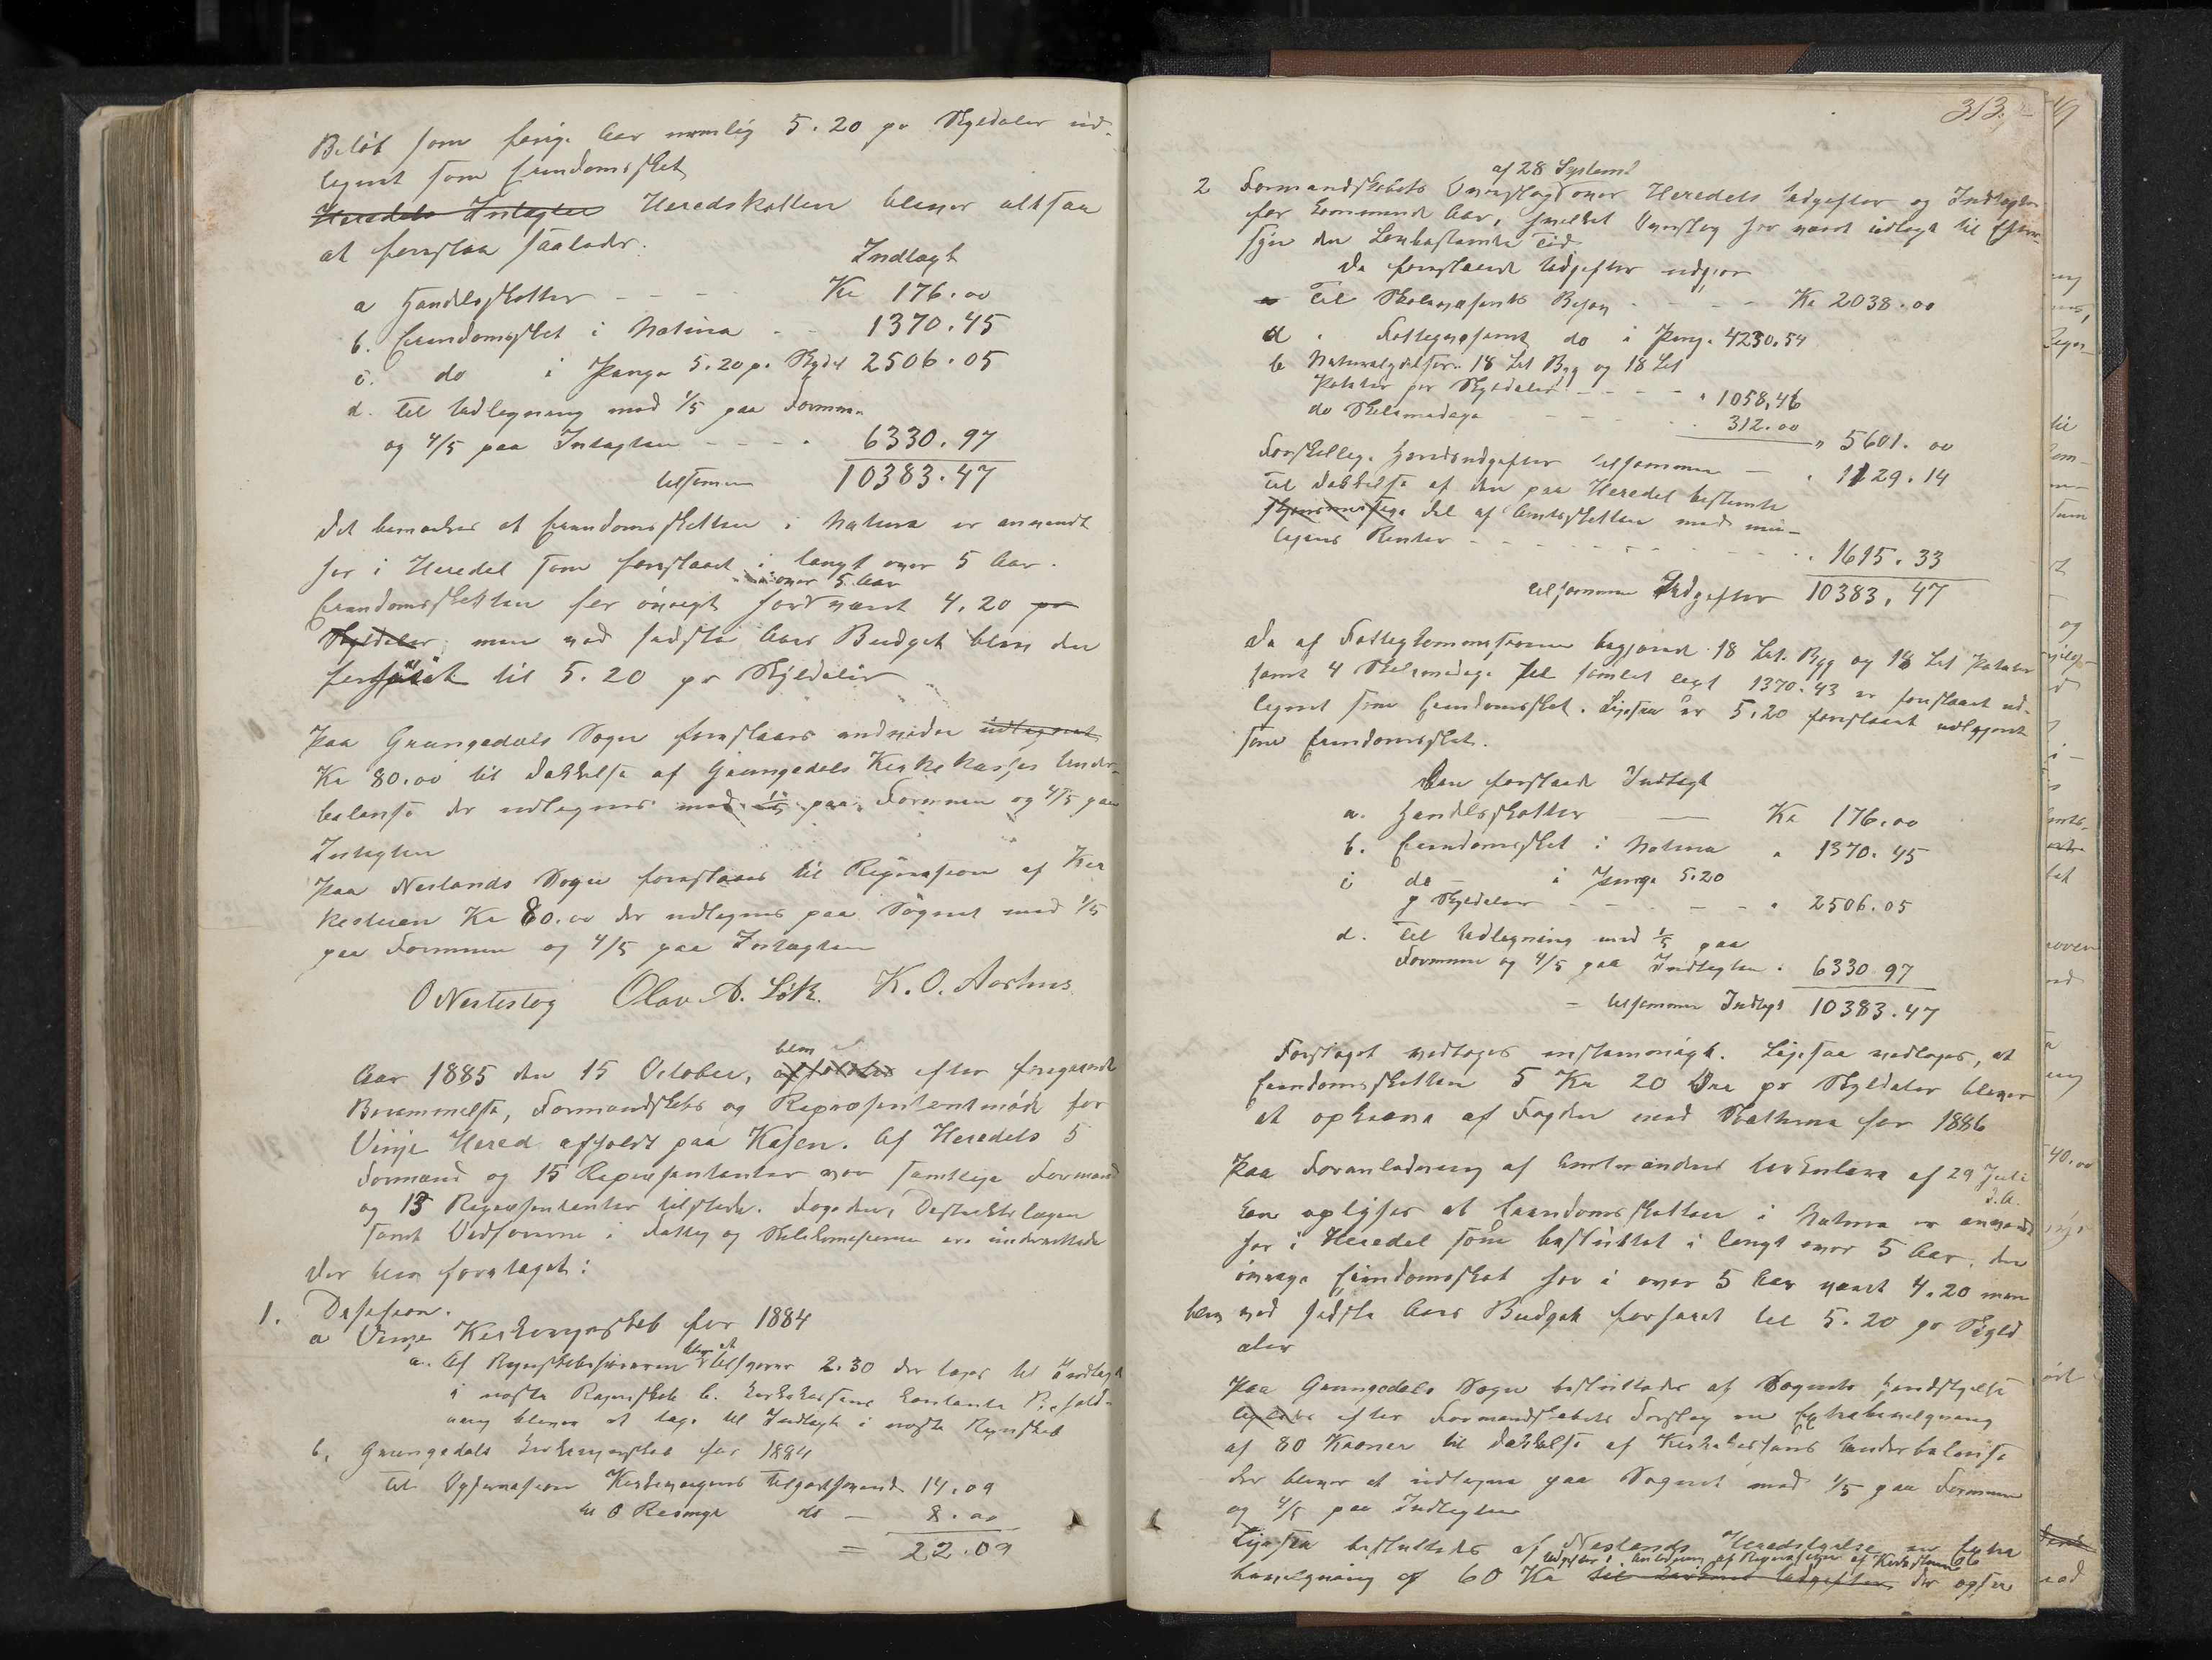 Beløb som forrige Aar nemlig 5.20 pr Skyldaler ud-
lignet som Eiendomsskat
Heredets Intægter Heredskatten bliver altsaa
at foreslaa saaledes:
Indtægt
a Handelsskatter - - - Kr 176.00
b. Eiendomsskat i Natura - - 1370.45
c. do i Penge 5.20 pr. Skyld 2506.05
d. Til Udligning med 1/5 paa Formue
og 4/5 paa Intægten - - - 6330.97
tilsammen 10383.47
Det bemærkes at Eiendomsskatten i Natura er anvendt
her i Heredet som foreslaaet i langt over 5 Aar.
over 5 Aar
Eiendomsskatten for øvrigt har været 4.20 pr
Skyldaler; men ved sidste Aars Budget blev den
forhøiet til 5.20 pr Skyldaler
Paa Grungedals Sogn foreslaaes endvidere udlignet
Kr 80.00 til Dækkelse af Grungedals Kirkekasses Under-
balanse der udlignes med 1/5 paa Formuen og 4/5 paa
Intægten
Paa Neslands Sogn foreslaaes til Reparasion af Kir
kestuen Kr 60.00 der udlignes paa Sognet med 1/5
paa Formuen og 4/5 paa Intægten
O Nestestog Olav A. Løk. K. O. Aarhus
Aar 1885 den 15 October, blev efter foregaaende
Berammelse, Formandskabs og Repræsentantmøde for
Vinje Hered afholdt paa Kasen. Af Heredets 5
Formænd og 15 Repræsentanter var samtlige Formænd
og 13 Repræsentanter tilstede. Fogden, Destriktslægen
samt Ordførerne i Fattig og Skolekomisionen ere underrettede
Der blev foretaget:
1. Desision.
a Vinje Kirkeregnskab for 1884
a. Af Regnskabsføreren blev at tilsvare 2.30 der tages til Indtægt
i næste Regnskab b. Kirkekassens kontante Behold-
ning bliver at tage til Indtægt i næste Regnskab
b. Grungedals Kirkeregnskab for 1884
Til Observasion Kirkeværgens Tilgodehavende 14.09
til O Rusnge do — 8.00
= 22.09
313.
af 28 Septemb
2 Formandskabets Overslag over Heredets Udgifter og Indtægter
for kommende Aar, hvilket Overslag har været udlagt til Efter-
syn den Lovbestemte Tid.
De foreslaaede Udgifter udgjør
Til Skolevæsenets Behov - - - - Kr 2038.00
a . Fattigvæsenet do i Peng. 4230.54
b Naturalydelser. 18 Let Byg og 18 Let
Poteter per Skyldaler - - - - " 1058,46
do Skolemadage - - - 312.00
" 5601.00
Forskellige Heredsudgifter tilsammen — . 1129.14
Til Dækkelse af den paa Heredet bestemte
Del af Amtsskatten med mu-
ligens Renter - - - - - - - - . 1615.33
tilsammen Udgifter 10383.47
Da af Fattigkommisionen begjæred 18 Let. Byg og 18 Let Poteter
samt 4 Skolemadage til samlet lagt 1370.43 er foreslaaet ud-
lignet som Eiendomsskat. Ligesaa er 5.20 foreslaaet udlignet
som Eiendomsskat.
Den foreslaaede Indtægt
a. Handelsskatter — Kr 176.00
b. Eiendomsskat i Natura " 1370.45
c do — i Penge 5.20
p Skyldaler - - - - - " 2506.05
d. Til Udligning med 1/5 paa
Formue og 4/5 paa Indtægten. 6330 97
= tilsammen Indtægt 10383.47
Forslaget vedtoges enstemmigt. Ligesaa vedtoges, at
Eiendomsskatten 5 Kr 20 Øre pr Skyldaler bliver
at opkræve af Fogden med Skatterne for 1886
Paa Foranledning af Amtmandens Cirkulære af 29 Juli
d.A.
kan oplyses at Eiendomsskatten i Natura er anvendt
her i Heredet som besluttet i langt over 5 Aar, den
øvrige Eiendomsskat har i over 5 Aar været 4.20 men
blev ved sidste Aars Budget forhøiet til 5.20 pr Skyld
aler
Paa Grungedals Sogn besluttedes af Sognets Heredstyrelse
efter Formandskabets Forslag en Extrabevilgning
af 80 Kroner til Dækkelse af Kirkekassens Underbalanse
der bliver at udligne paa Sognet med 1/5 paa Formuen
og 4/5 paa Indtægten
Ligesaa besluttedes af Neslands Heredstyrelse en Extra
Udgifter i Anledning af Reparasion af Kirkestuen
bevilgning af 60 Kr til Kirkens Udgifter, der ogsaa